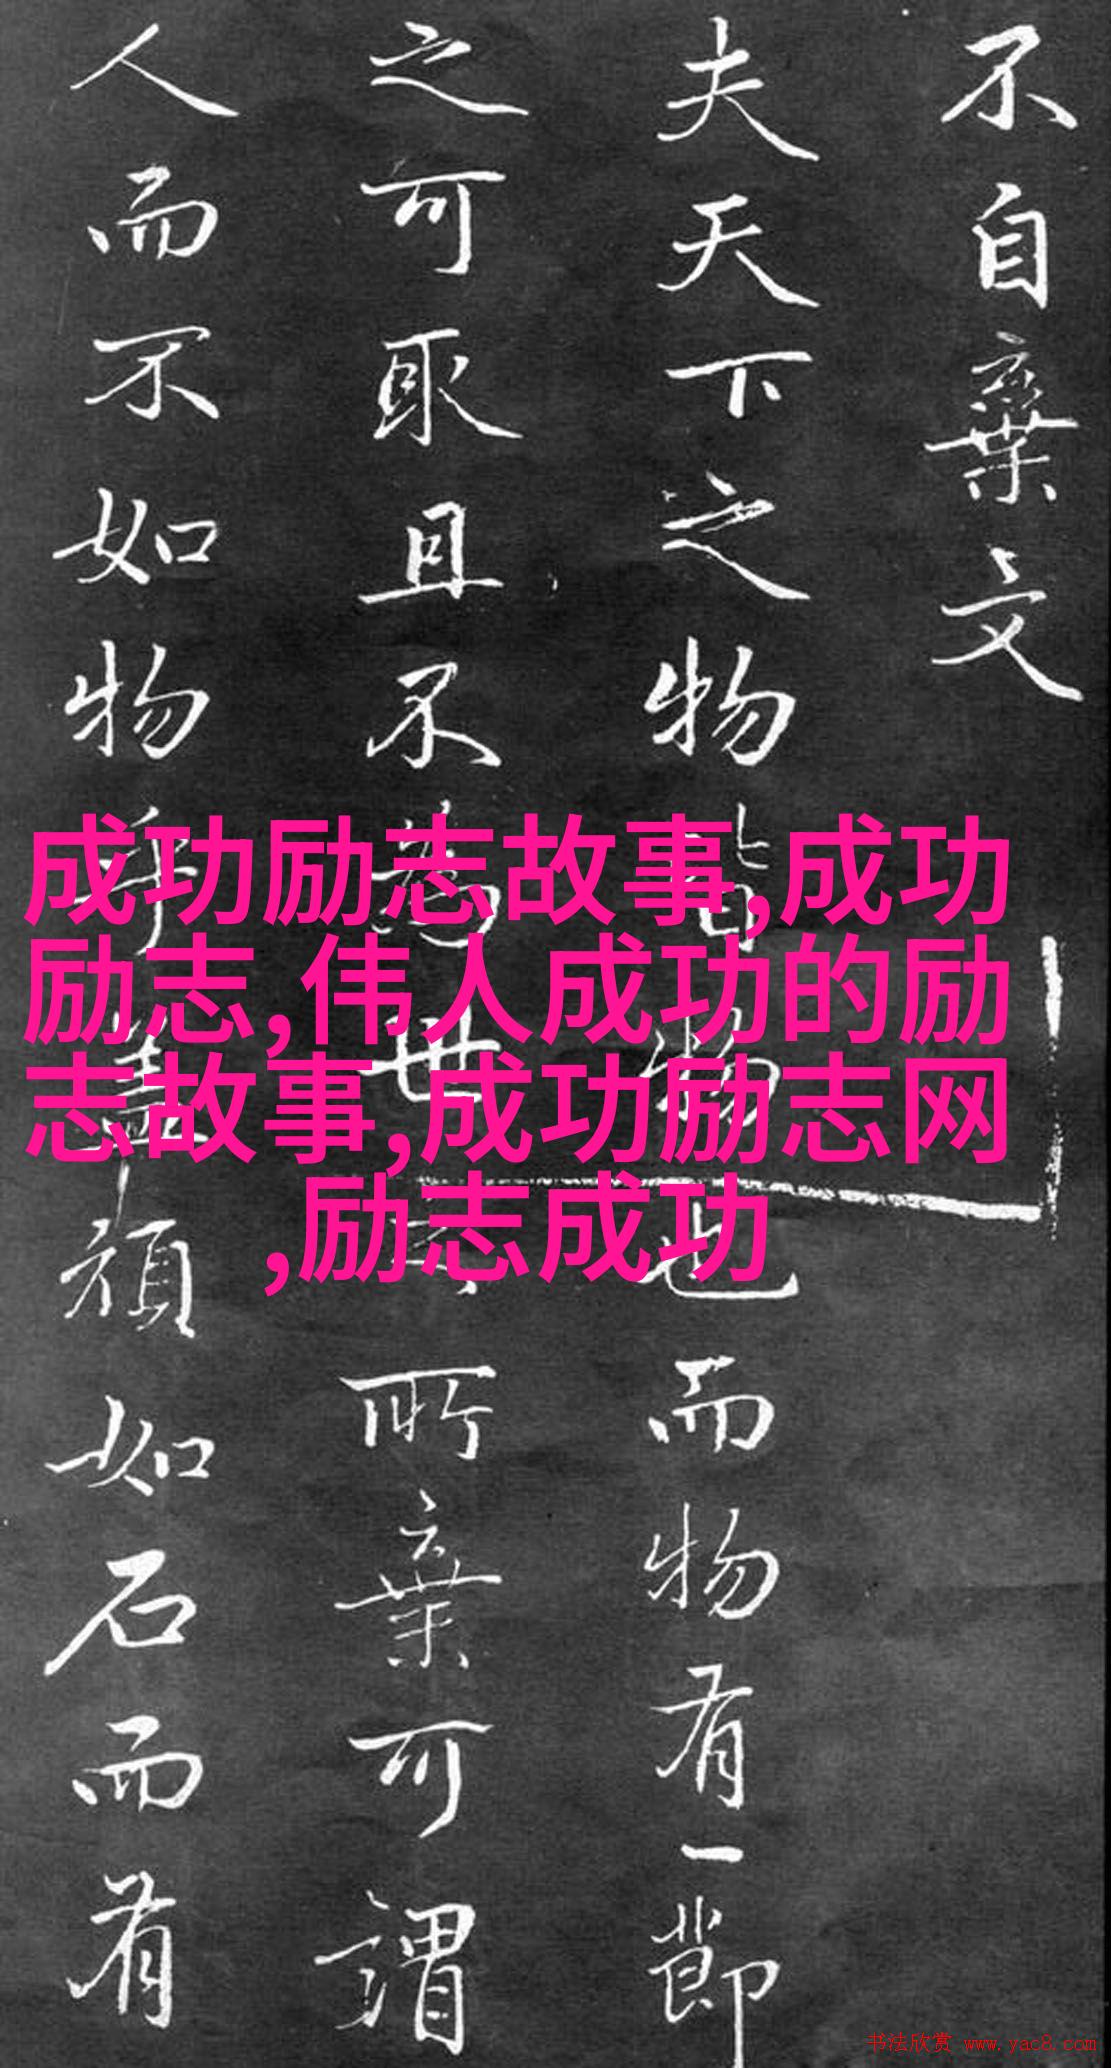 不自棄文
夫天下之物皆物也而物有一節
之可取且不為世之所棄可謂
人而不如物乎蓋頑如石而有
成功励志故事,成功
励志,伟人成功的励
志故事,成功励志网
,励志成功
书法欣赏 www.yac8.com